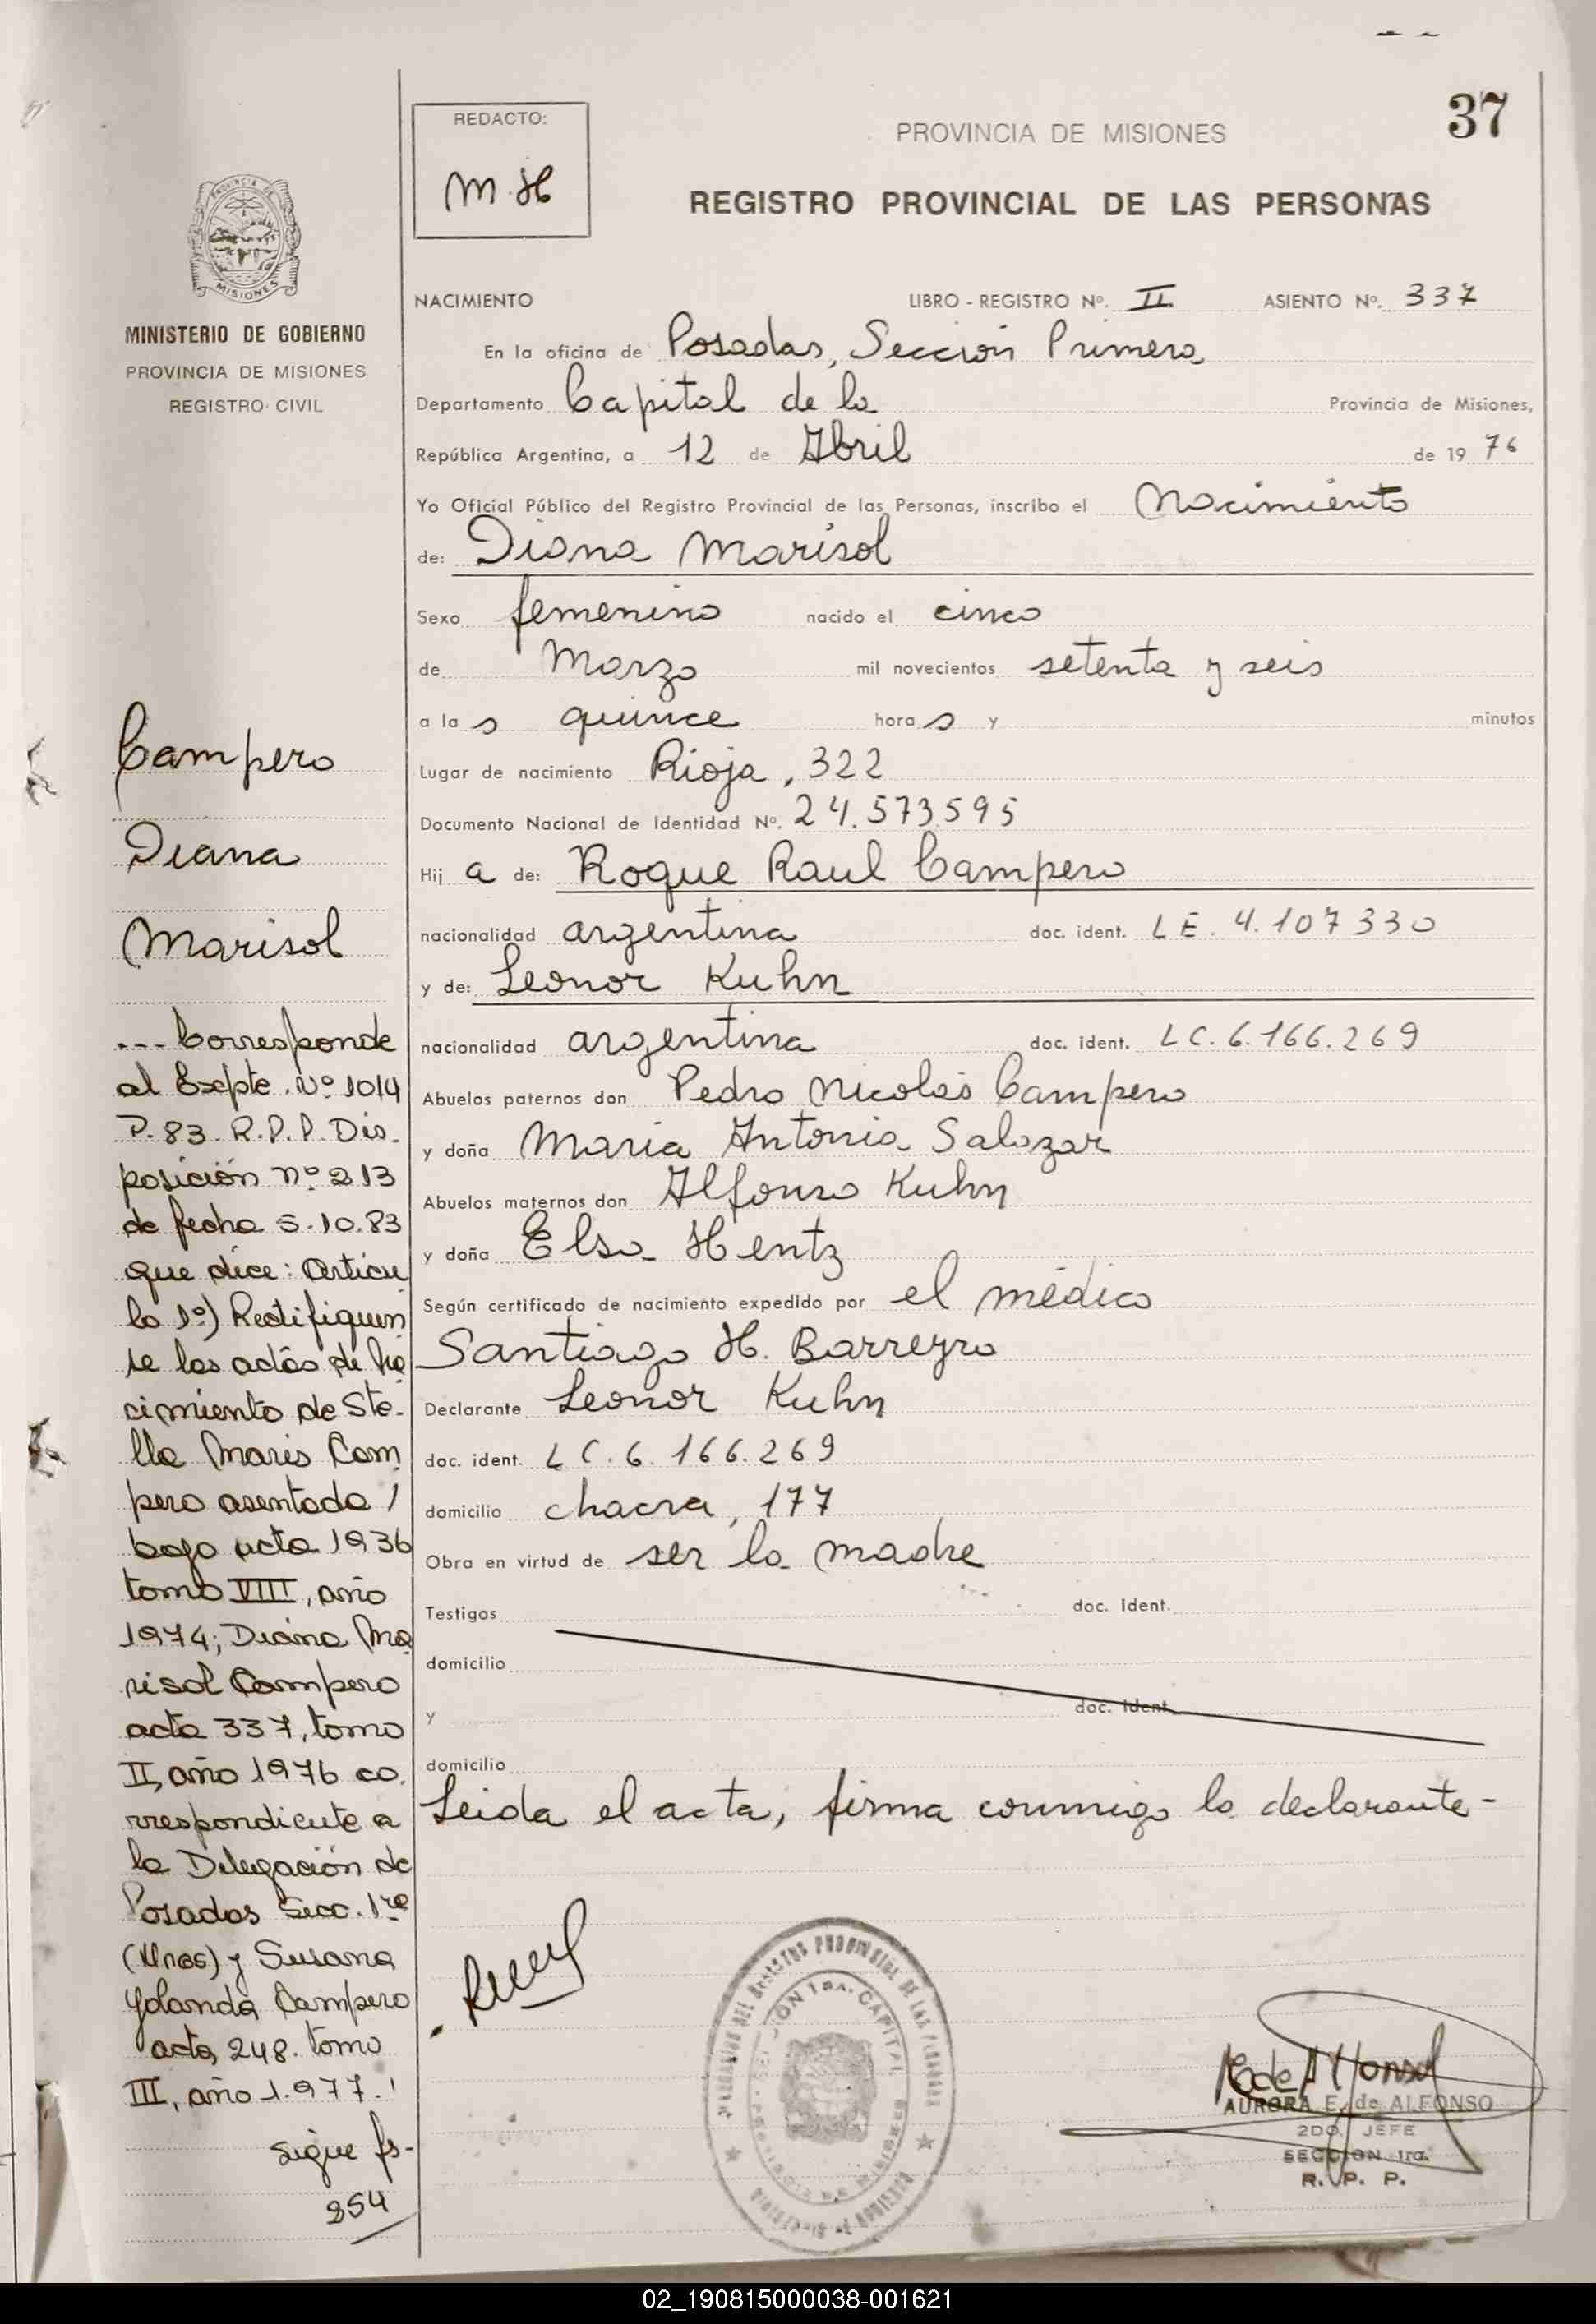 37
REDACTO:
M.H
PROVINCIA DE MISIONES
REGISTRO PROVINCIAL DE LAS PERSONAS
MISIONES
MINISTERIO DE GOBIERNO
PROVINCIA DE MISIONES
REGISTRO CIVIL
NACIMIENTO LIBRO - REGISTRO Nº. II ASIENTO Nº. 337
En la oficina de Posadas, Sección Primera
Departamento Capital de la Provincia de Misiones,
República Argentina, a 12 de Abril de 1976
Yo Oficial Público del Registro Provincial de las Personas, inscribo el Nacimiento
de: Diana Marisol
Sexo femenino nacido el cinco
de Marzo mil novecientos setenta y seis
a la s quince hora s y minutos
Lugar de nacimiento Rioja, 322
Documento Nacional de Identidad Nº. 24.573.595
Hij a de: Roque Raul Campero
nacionalidad argentina doc. ident. LE. 4.107330
y de: Leonor Kuhn
nacionalidad argentina doc. ident. LC. 6.166.269
Abuelos paternos don Pedro Nicolás Campero
y doña Maria Antonia Salazar
Abuelos maternos don Alfonso Kuhn
y doña Elsa Hentz
Según certificado de nacimiento expedido por el médico
Santiago H. Barreyro
Declarante Leonor Kuhn
doc. ident. LC. 6. 166.269
domicilio chacra, 177
Obra en virtud de ser la madre
Testigos doc. ident.
domicilio
y doc. ident.
domicilio
Leida el acta, firma conmigo la declarante-
Campero
Diana
Marisol
--- Corresponde
al Expte. Nº 1014
P-83 R.P.P. Dis-
posición nº 213
de fecha 5-10.83
que dice: Articu
lo 1º) Rectifiquen
se las actas de na
cimiento de Ste-
lla Maris Cam
pero asentada
bajo acta 1936
tomo VIII, año
1974; Diana Ma
risol Campero
acta 337, tomo
II, año 1976 co.
rrespondiente a
la Delegación de
Posadas Secc. 1ra
(Mnes) y Susana
Yolanda Campero
acta 248. tomo
III, año 1.977.
sigue fs-
254
AURORA E. de ALFONSO
2DO. JEFE
SECCION 1ra.
R. P. P.
02_190815000038-001621